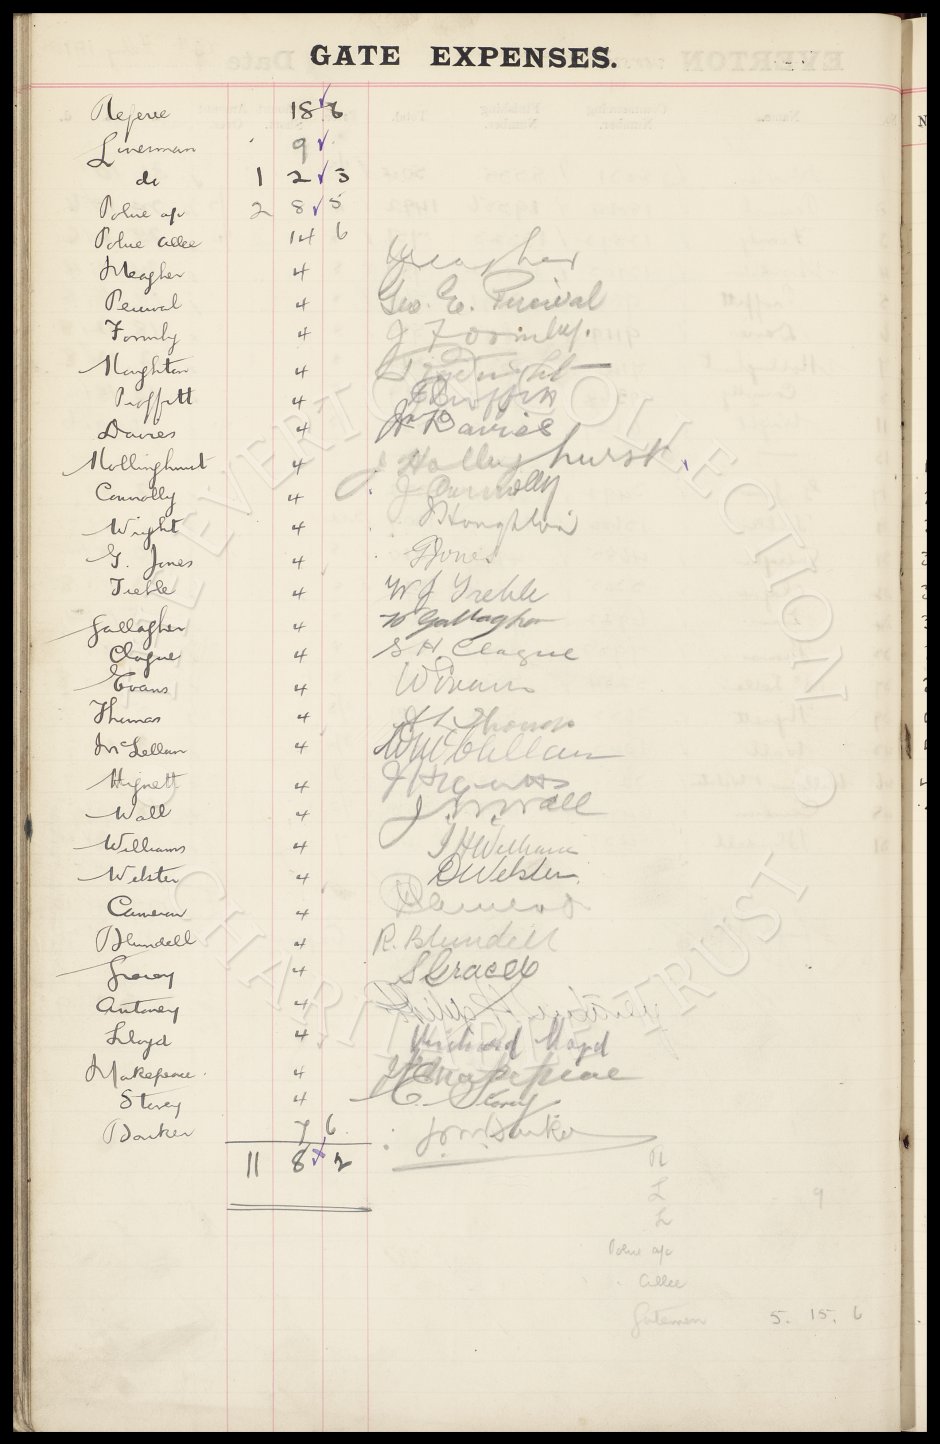 GATE EXPENSES.
Referee 18 6
Linesman 9
do 1 2 3
Police a/c 2 8 5
Police allee 14 6
Meagher 4 Meagher
Percival 4 Geo. E. Percival
Formby 4 J Formby.
Houghton 4
Proffitt 4 Proffitt
Davies 4 Davies
Hollinghurst 4 J Hollinghurst
Connolly 4 J Connolly
Wright 4 J Houghton
G. Jones 4 Jones
Treble 4 W J Treble
Gallagher 4 W Gallagher
Clague 4 S H Clague
Evans 4 W Evans
Thomas 4 J L Thomas
McLellan 4 W McClellan
Hignett 4 J Hignett
Wall 4 J. W. Wall
Williams 4 J H Williams
Webster 4 D Webster.
Cameron 4 Cameron
Blundell 4 R. Blundell
Gracey 4 S Gracey
Antoney 4
Lloyd 4 Richard Lloyd
Makepeace 4 Makepeace
Storey 4 C. Storey
Barker 7 6 Barker
11 8 2
R
L 9
L
Police a/c
allee
Gatemen 5. 15. 6
THE EVERTON COLLECTION CHARITABLE TRUST